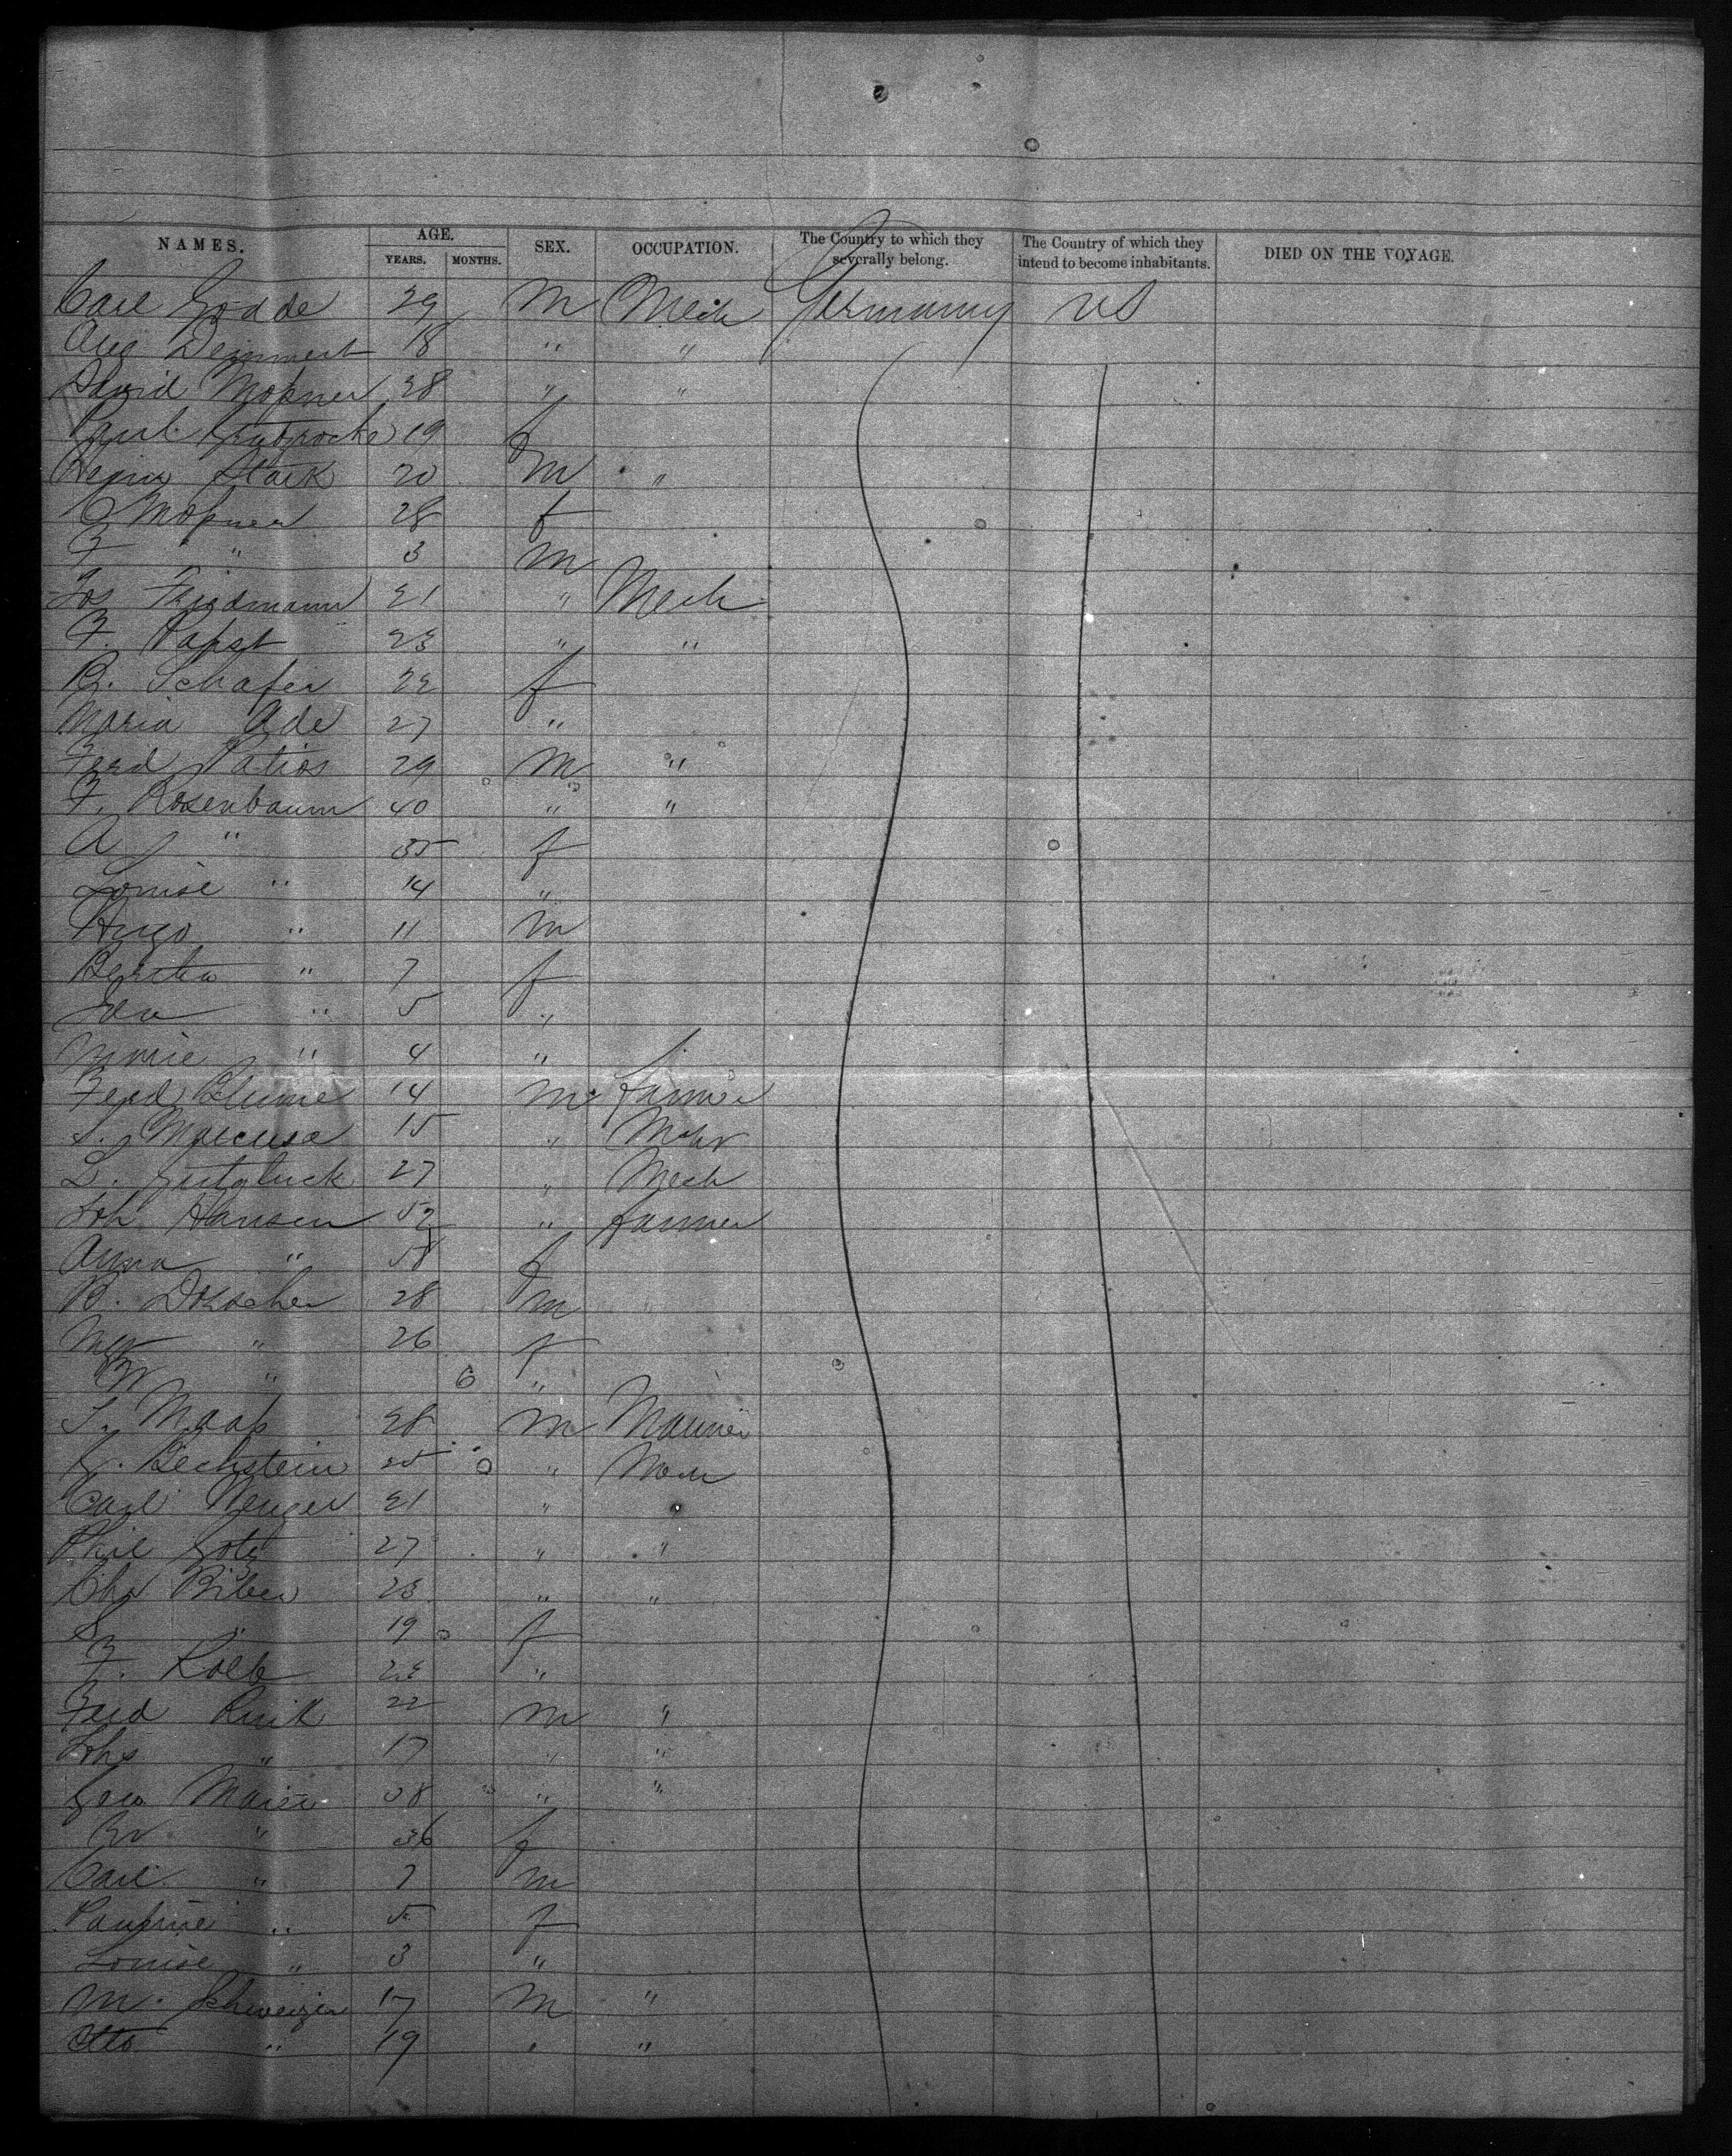 NAMES. AGE. YEARS. MONTHS. SEX. OCCUPATION. The Country to which they severally belong. The Country of which they intend to become inhabitants. DIED ON THE VOYAGE.
Carl Godde 29 M Mech Germany US
Aug 18 " "
David Mopner 28 " "
19 f
Heinr Stark 20 M "
C Mopner 28 f
F " 3 M
Jos Friedmann 21 " Mech
F. Papst 23 " "
B. Schafer 22 f
Maria Ade 27 "
Ferd Patios 29 M "
F. Rosenbaum 40 " "
A " 35 f
Louise " 14 "
Hugo " 11 M
Bertha " 7 f
Ida " 5 "
Marie " 4 "
Ferd Blume 14 M farmer
S. 15 "
L. Gutgluck 27 " Mech
Joh Hansen 52 " farmer
Anna " 58 f
B. Doescher 28 m
" 26 f
" 6 "
28 M
G. Bechstein 25 "
Carl 21 "
Phil Gotz 27 " "
Chr Biber 23 " "
S " 19 f
F. Kolb 23 "
Ferd Ruik 22 M "
Johs " 17 " "
Geo Maier 38 " "
" 36 f
Carl " 7 m
Pauline " 5 f
Louise " 3 "
M. Schweizer 17 M "
Otto " 19 " "